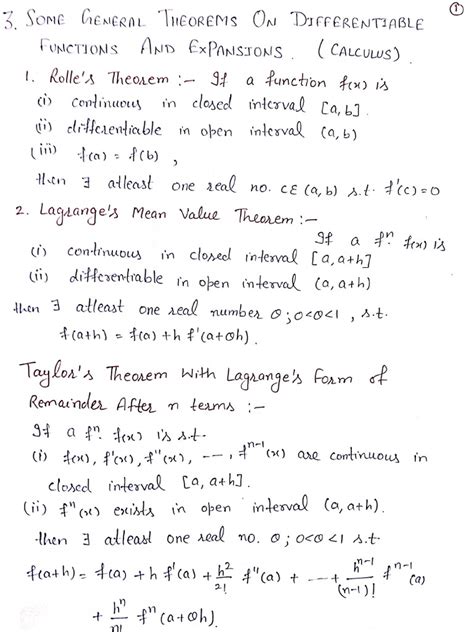 ①
3. SOME GENERAL THEOREMS ON DIFFERENTIABLE
FUNCTIONS AND EXPANSIONS. (CALCULUS)
1. Rolle's Theorem :- If a function f(x) is
(i) continuous in closed interval [a,b].
(ii) differentiable in open interval (a,b)
(iii) f(a) = f(b),
then ∃ atleast one real no. c∈(a,b) s.t. f'(c)=0
2. Lagrange's Mean Value Theorem :-
If a fⁿ. f(x) is
(i) continuous in closed interval [a,a+h]
(ii) differentiable in open interval (a,a+h)
then ∃ atleast one real number θ; 0<θ<1, s.t.
f(a+h) = f(a)+h f'(a+θh).
Taylor's Theorem With Lagrange's Form of
Remainder After n terms :-
If a fⁿ. f(x) is s.t.
(i) f(x), f'(x), f''(x), ---, fⁿ⁻¹(x) are continuous in
closed interval [a,a+h].
(ii) fⁿ(x) exists in open interval (a,a+h).
then ∃ atleast one real no. θ; 0<θ<1 s.t
f(a+h) = f(a)+h f'(a)+h²/2! f''(a) + ---+hⁿ⁻¹/(n-1)! fⁿ⁻¹(a)
+ hⁿ/n! fⁿ(a+θh)